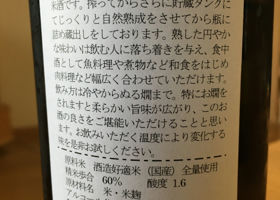 米酒です。搾ってからさらに貯蔵タンクに
てじっくりと自然熟成をさせてから瓶に
詰め蔵出しをしております。熟した円やか
な味わいは飲む人に落ち着きを与え、食中
酒として魚料理や煮物など和食をはじめ
肉料理など幅広く合わせていただけます。
飲み方は冷やからぬる燗まで。特にお燗を
されますと柔らかい旨味が広がり、このお
酒の良さをご堪能いただけることと思いま
す。お飲みいただく温度により変化する
味を是非お試しください。
原料米 酒造好適米(国産)全量使用
精米歩合 60% 酸度 1.6
原材料名 米・米麹
アルコール